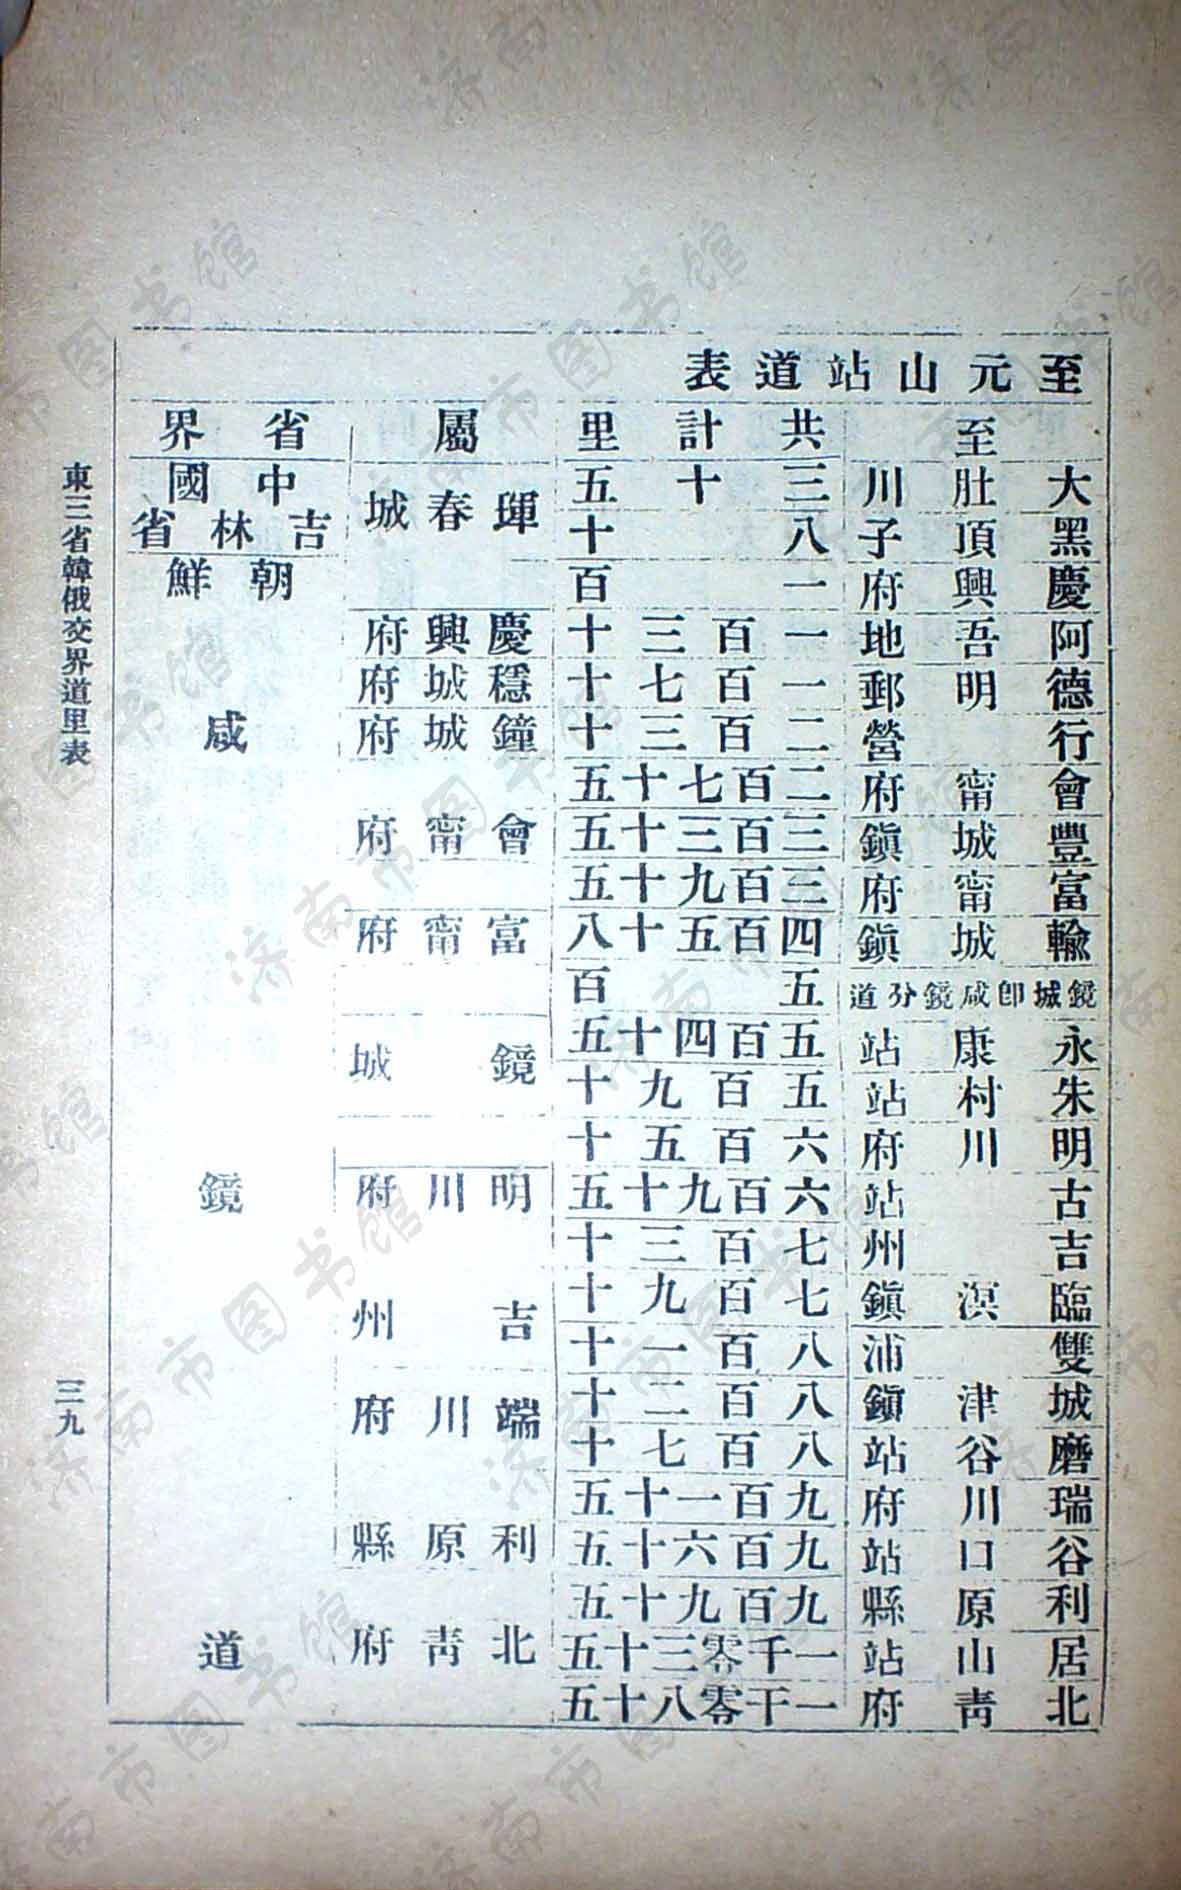 至元山站道表
至 共計里 屬 省界
大肚川 三十五 琿春城 中國吉林省
黑頂子 八十
慶興府 一百 朝鮮咸鏡道
阿吾地 一百三十 慶興府
德明郵 一百七十 穩城府
行營 二百三十 鐘城府
會甯府 二百七十五
豐城鎭 三百三十五 會甯府
富甯府 三百九十五
輸城鎭 四百五十八 富甯府
鏡城卽咸鏡分道 五百
永康站 五百四十五 鏡城
朱村站 五百九十
明川府 六百五十
古站 六百九十五 明川府
吉州 七百三十
臨溟鎭 七百九十 吉州
雙浦 八百一十
城津鎭 八百二十 端川府
磨谷站 八百七十
瑞川府 九百一十五
谷口站 九百六十五 利原縣
利原縣 九百九十五
居山站 一千零三十五 北靑府
北靑府 一千零八十五
東三省韓俄交界道里表
三九
济南市图书馆